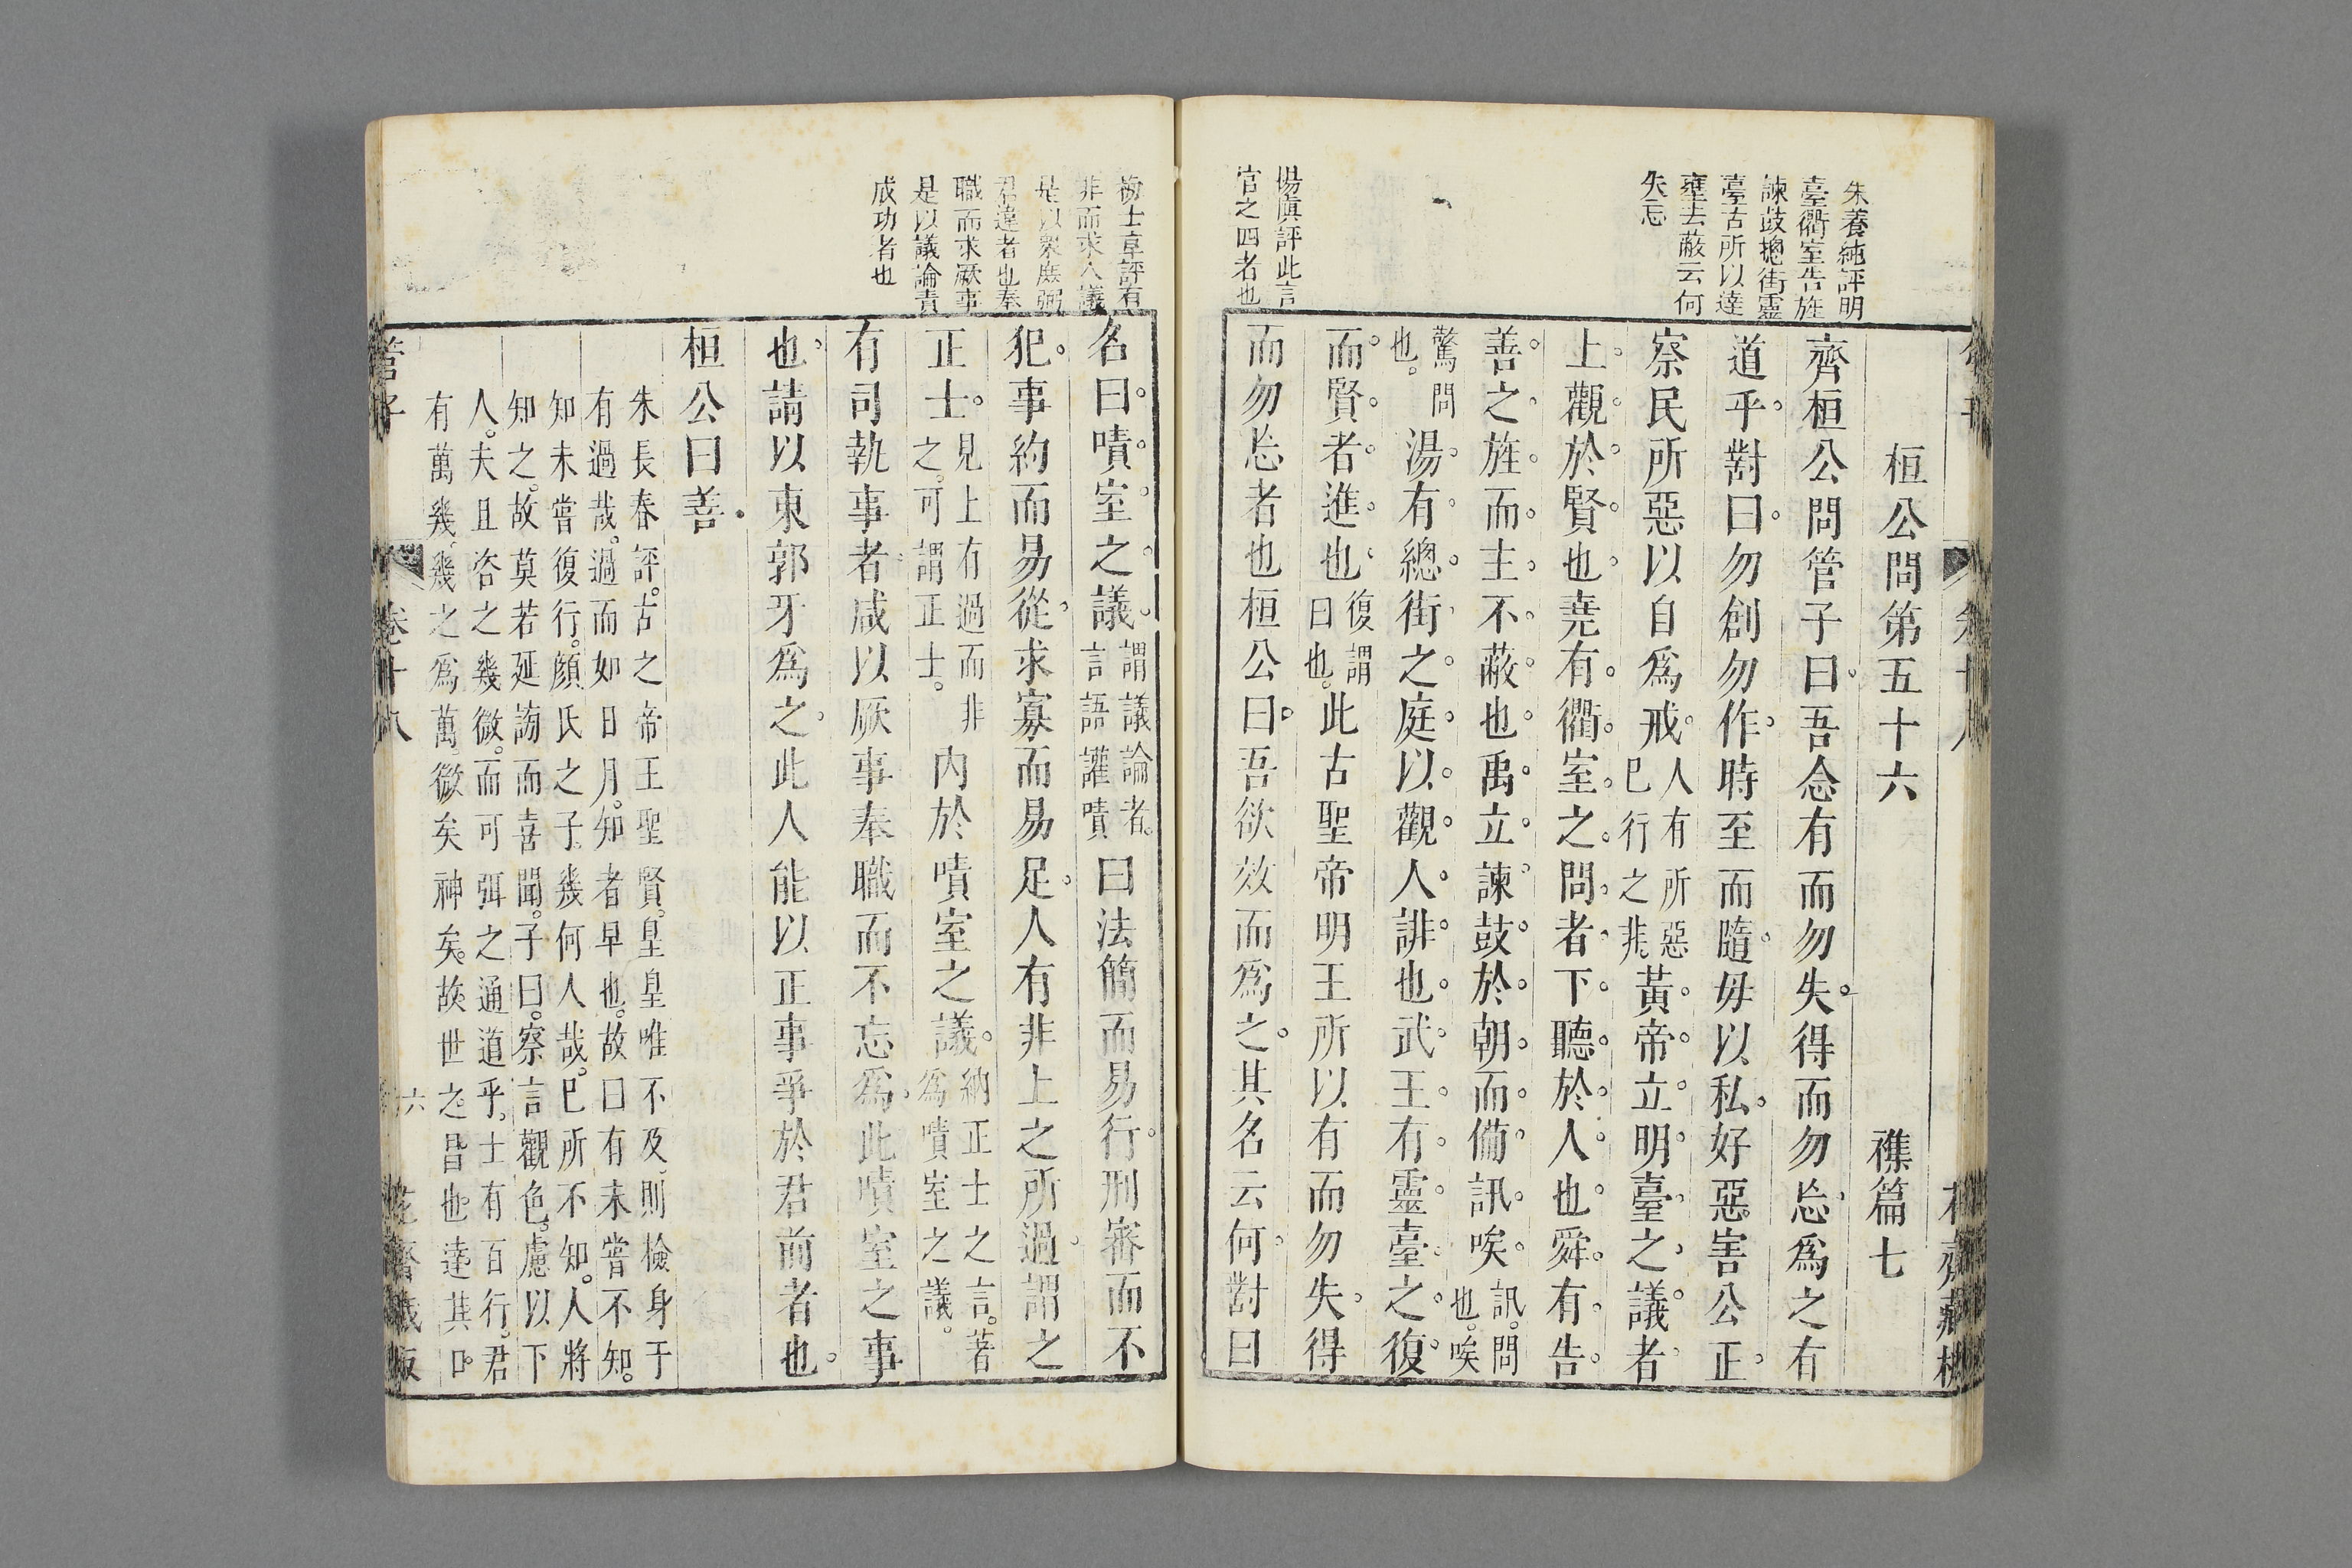 朱養純評明
臺衢室告旌
諫鼓總街靈
臺古所以達
壅去蔽云何
失忘
楊慎評此言
官之四者也
桓公問第五十六 襍篇七
齊桓公問管子曰吾念有而勿失得而勿忘爲之有
道乎對曰勿創勿作時至而隨毋以私好惡害公正
察民所惡以自爲戒人有所惡已行之非黃帝立明臺之議者
上觀於賢也堯有衢室之問者下聽於人也舜有告
善之旌而主不蔽也禹立諫鼓於朝而備訊唉訊問也唉
驚問也湯有總街之庭以觀人誹也武王有靈臺之復
而賢者進也復謂曰也此古聖帝明王所以有而勿失得
而勿忘者也桓公曰吾欲效而爲之其名云何對曰
梅士享評有
非而求人議
是以衆庶弼
君違者也奉
職而求厥事
是以議論責
成功者也
名曰嘖室之議謂議論者言語讙嘖曰法簡而易行刑審而不
犯事約而易從求寡而易足人有非上之所過謂之
正士見上有過而非之可謂正士內於嘖室之議納正士之言著爲嘖室之議
有司執事者咸以厥事奉職而不忘爲此嘖室之事
也請以東郭牙爲之此人能以正事爭於君前者也
桓公曰善
朱長春評古之帝王聖賢皇皇唯不及則檢身于
有過哉過而如日月知者早也故曰有未嘗不知
知未嘗復行顏氏之子幾何人哉已所不知人將
知之故莫若延訪而喜聞子曰察言觀色慮以下
人夫且咨之幾微而可弭之通道乎士有百行君
有萬幾幾之爲萬微矣神矣故世之昌也達其口
管子 卷十八 六 花齋藏板